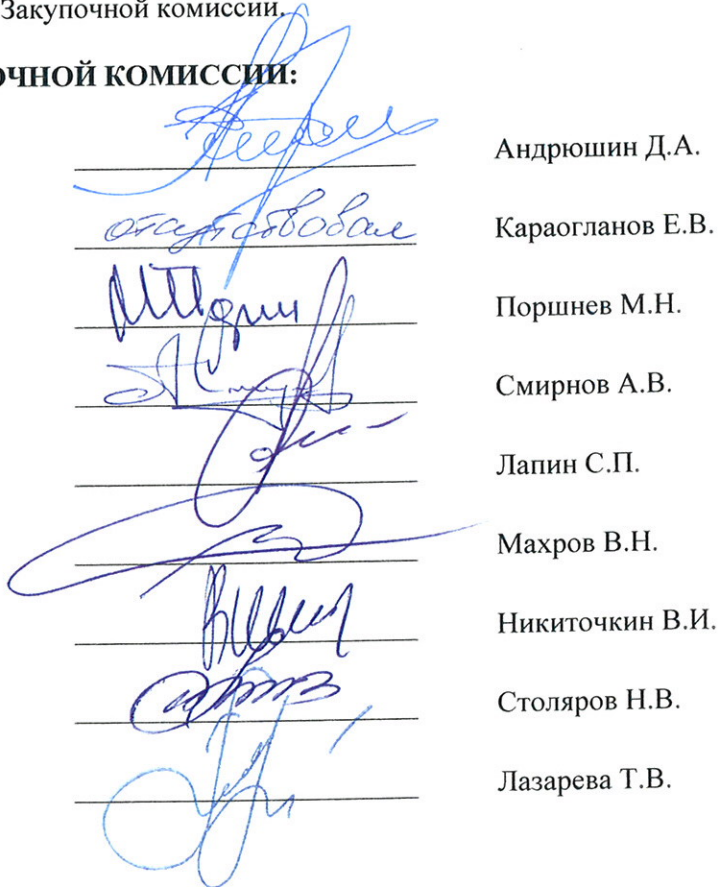 Закупочной комиссии.
ОЧНОЙ КОМИССИИ:
Андрюшин Д.А.
отсутствовал Караогланов Е.В.
Поршнев М.Н.
Смирнов А.В.
Лапин С.П.
Махров В.Н.
Никиточкин В.И.
Столяров Н.В.
Лазарева Т.В.